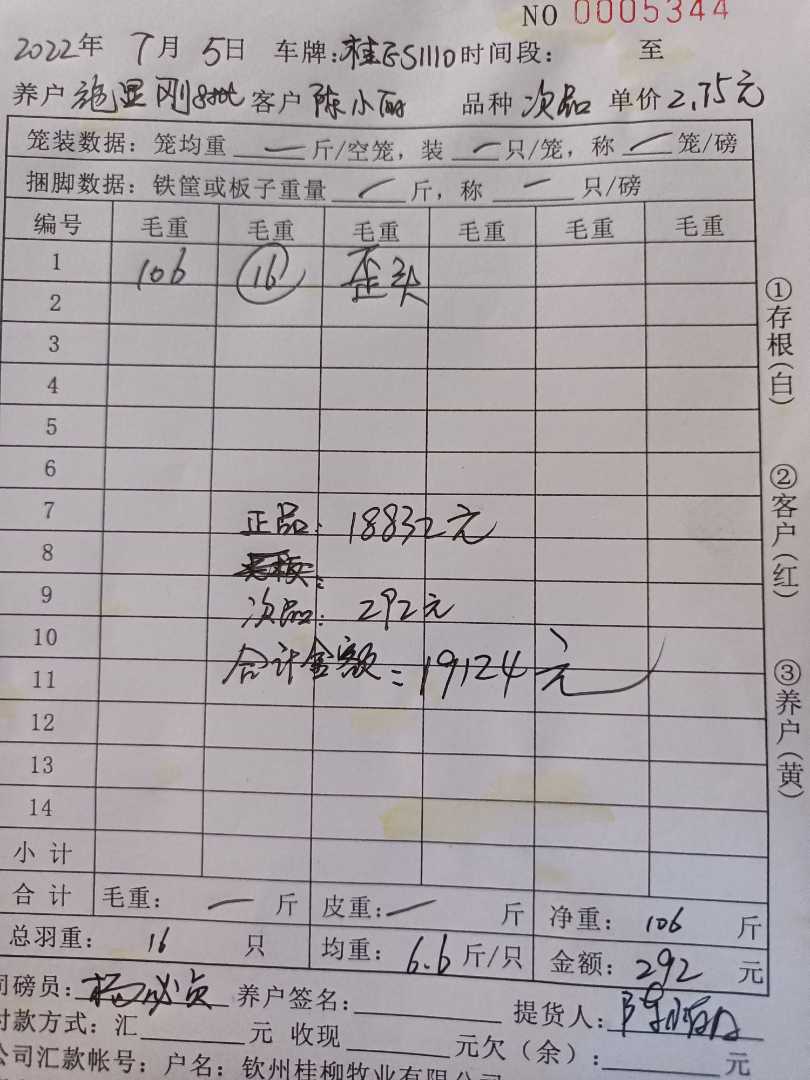 NO 0005344
2022年 7月 5日 车牌:桂ES1110 时间段: 至
养户 施显刚 客户 陈小丽 品种 次品 单价 2.75元
笼装数据: 笼均重 一 斤/空笼, 装 一 只/笼, 称 一 笼/磅
捆脚数据: 铁筐或板子重量 一 斤, 称 一 只/磅
编号 毛重 毛重 毛重 毛重 毛重 毛重
1 106 16 歪头
2
3
4
5
6
7 正品: 18832元
8
9 次品: 292元
10
11 合计金额: 19124元
12
13
14
小 计
合 计 毛重: 一 斤 皮重: 一 斤 净重: 106 斤
总羽重: 16 只 均重: 6.6 斤/只 金额: 292 元
司磅员: 杨必贞 养户签名: 提货人: 陈小丽
付款方式: 汇 元 收现 元欠(余): 元
公司汇款帐号: 户名: 钦州桂柳牧业有限公司
①存根(白)
②客户(红)
③养户(黄)